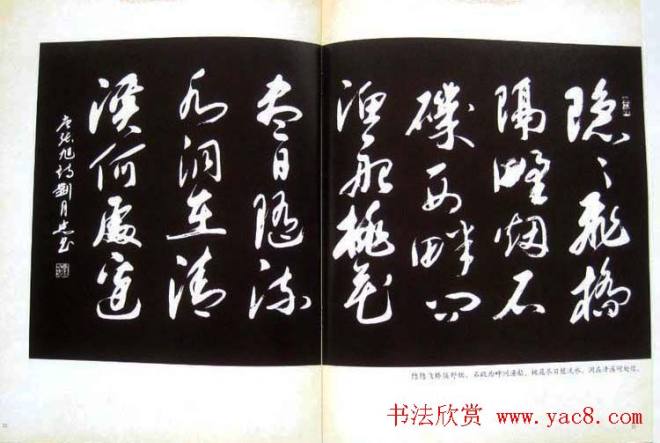 隐〻飛橋
隔野烟石
磯西畔问
渔船桃花
盡日随流
水洞在清
溪何處邊
唐张旭诗劉月
隐隐飞桥隔野烟，石矶西畔问渔船。桃花尽日随流水，洞在清溪何处边。
书法欣赏 www.yac8.com